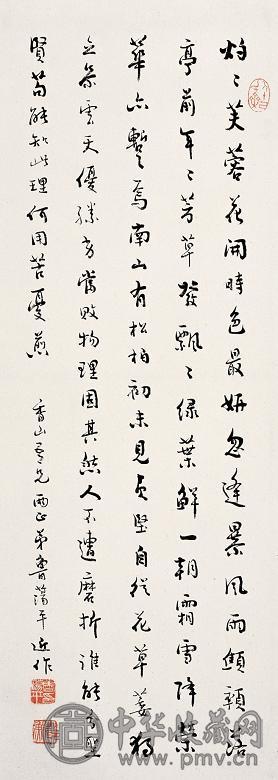 灼々芙蓉花開時色最妍忽逢暴風雨傾頹落
亭前年々芳草發飄々綠葉鮮一朝霜雪降榮
華亦暫焉南山有松柏初未見貞堅自從花草萎獨
立參雲天優勝方嘗敗物理固其然人不遭磨折誰能為聖
賢苟能知此理何用苦憂煎
香山吾兄兩正弟曹蕩平近作
中华收藏网
www.pmv.cn